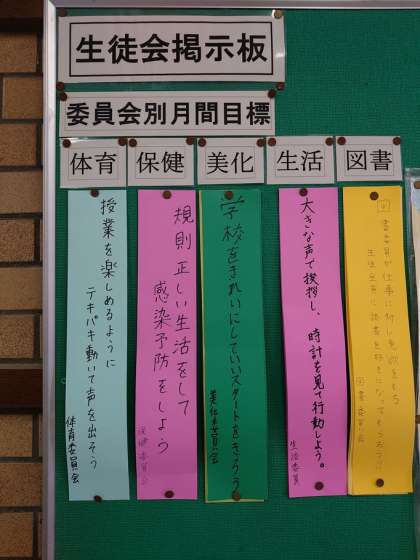 生徒会掲示板
委員会別月間目標
体育
保健
美化
生活
図書
授業を楽しめるように
テキパキ動いて声を出そう
体育委員会
規則正しい生活をして
感染予防をしよう
保健委員会
学校をきれいにしていいスタートをきろう
美化委員会
大きな声で挨拶し、時計を見て行動しよう。
生活委員
図書委員が仕事に対し意識をもち
生徒全員に読書を好きになってもらおう!!
図書委員会